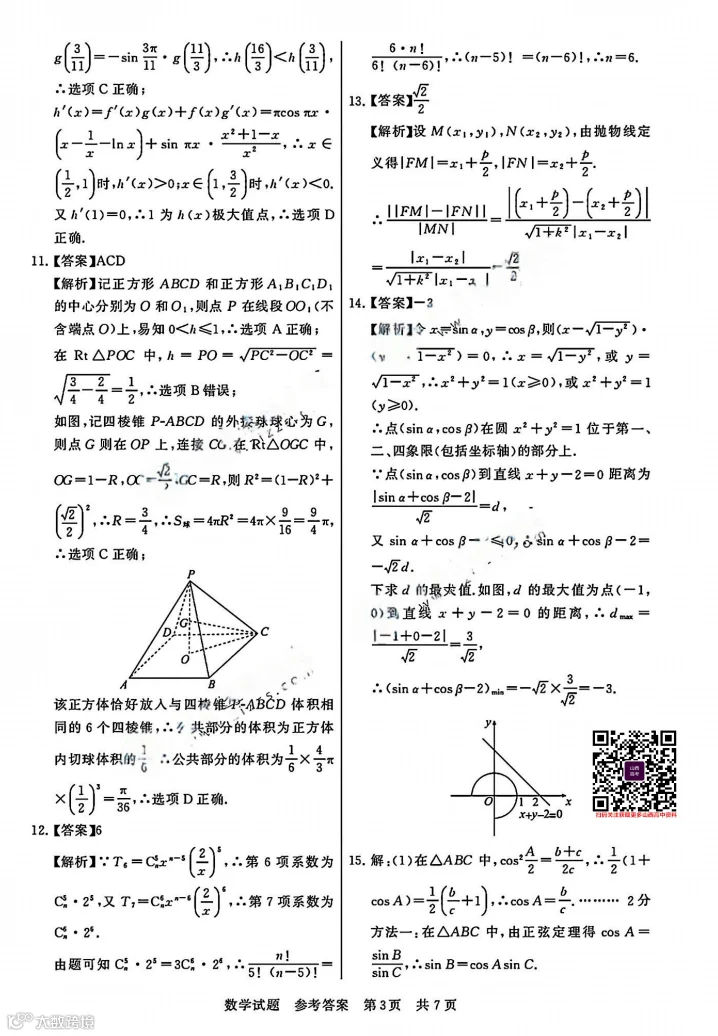 g(3/11)=-sin 3π/11·g(11/3),∴h(16/3)<h(3/11),
∴选项 C 正确;
h′(x)=f′(x)g(x)+f(x)g′(x)=πcos πx·
(x-1/x-ln x)+sin πx·(x²+1-x)/x²,∴x∈
(1/2,1)时,h′(x)>0;x∈(1,3/2)时,h′(x)<0.
又 h′(1)=0,∴1 为 h(x)极大值点,∴选项 D
正确.
11.【答案】ACD
【解析】记正方形 ABCD 和正方形 A₁B₁C₁D₁
的中心分别为 O 和 O₁,则点 P 在线段 OO₁(不
含端点 O)上,易知 0<h≤1,∴选项 A 正确;
在 Rt△POC 中,h=PO=√(PC²-OC²)=
√(3/4-2/4)=1/2,∴选项 B 错误;
如图,记四棱锥 P-ABCD 的外接球球心为 G,
则点 G 则在 OP 上,连接 CG,在 Rt△OGC 中,
OG=1-R,OC=√2/2,GC=R,则 R²=(1-R)²+
(√2/2)²,∴R=3/4,∴S球=4πR²=4π×9/16=9/4π,
∴选项 C 正确;
P
G
D
C
O
A
B
该正方体恰好放入与四棱锥 P-ABCD 体积相
同的 6 个四棱锥,∴公共部分的体积为正方体
内切球体积的1/6 ∴公共部分的体积为1/6×4/3π
×(1/2)³=π/36,∴选项 D 正确.
12.【答案】6
【解析】∵T₆=C⁵ₙxⁿ⁻⁵(2/x)⁵,∴第 6 项系数为
C⁵ₙ·2⁵,又 T₇=C⁶ₙxⁿ⁻⁶(2/x)⁶,∴第 7 项系数为
C⁶ₙ·2⁶.
由题可知 C⁵ₙ·2⁵=3C⁶ₙ·2⁶,∴n!/(5!(n-5)!)=
6·n!/(6!(n-6)!),∴(n-5)!=(n-6)!,∴n=6.
13.【答案】√2/2
【解析】设 M(x₁,y₁),N(x₂,y₂),由抛物线定
义得|FM|=x₁+p/2,|FN|=x₂+p/2.
∴||FM|-|FN||/|MN|=|(x₁+p/2)-(x₂+p/2)|/(√(1+k²)|x₁-x₂|)
=|x₁-x₂|/(√(1+k²)|x₁-x₂|)=√2/2
14.【答案】-3
【解析】令 x=sin α,y=cos β,则(x-√(1-y²))·
(y-√(1-x²))=0,∴x=√(1-y²),或 y=
√(1-x²),∴x²+y²=1(x≥0),或 x²+y²=1
(y≥0).
∴点(sin α,cos β)在圆 x²+y²=1 位于第一、
二、四象限(包括坐标轴)的部分上.
∵点(sin α,cos β)到直线 x+y-2=0 距离为
|sin α+cos β-2|/√2=d,
又 sin α+cos β-2≤0,∴sin α+cos β-2=
-√2d.
下求 d 的最大值.如图,d 的最大值为点(-1,
0)到直线 x+y-2=0 的距离,∴dmax=
|-1+0-2|/√2=3/√2,
∴(sin α+cos β-2)min=-√2×3/√2=-3.
y
O
1
2
x
x+y-2=0
山西
高考
扫码关注获取更多山西高中资料
15.解:(1)在△ABC 中,cos²A/2=(b+c)/2c,∴1/2(1+
cos A)=1/2(b/c+1),∴cos A=b/c.……… 2分
方法一:在△ABC 中,由正弦定理得 cos A=
sin B/sin C,∴sin B=cos Asin C.
数学试题 参考答案 第3页 共7页
大数跨境